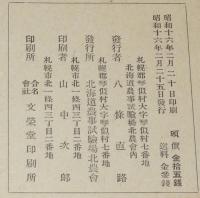 昭和十六年二月二十日印刷
昭和十六年二月二十五日發行
頒價 金拾五錢
送料 金參錢
札幌郡琴似村大字琴似村
北海道農事試驗場北農會內
發行者 八條直路
札幌郡琴似村大字琴似村二番地
發行所 北海道農事試驗場北農會
札幌市北一條西三丁目二番地
印刷者 山中次郎
札幌市北一條西三丁目二番地
印刷所 合名會社 文榮堂印刷所